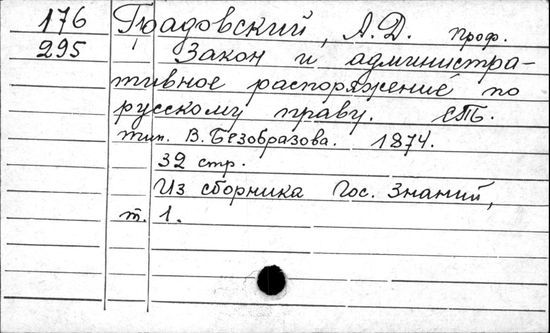 176 Градовский, А.Д. проф.
295 Закон и администра-
тивное распоряжение по
русскому праву. СПБ.
тип. В. Безобразова. 1874.
32 стр.
Из сборника Гос. Знаний,
т. 1.